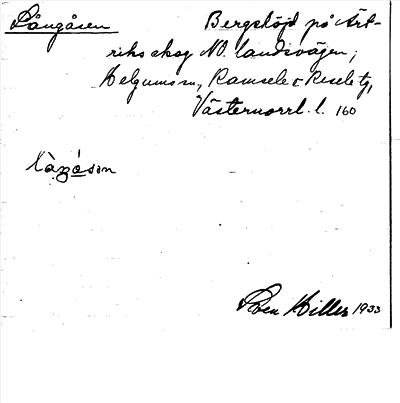 Långåsen Bergshöjd på Ärt-
riks skog NO. landsvägen;
Helgums sn, Ramsele o Resele tg,
Västernorrl. l. 160
Sven Hillers 1933